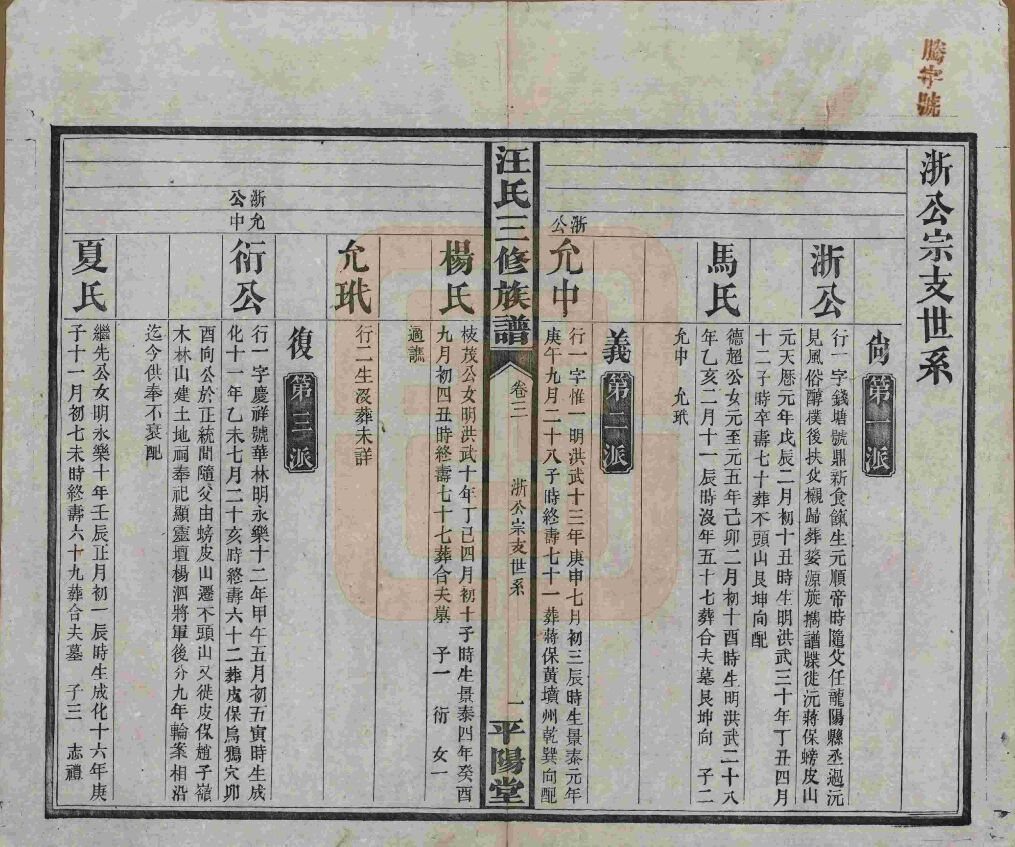 騰字號
浙公宗支世系
尙 第一派
浙公
行一字錢塘號鼎新食餼生元順帝時隨父任龍陽縣丞過沅
見風俗醇樸後扶父櫬歸葬婺源旋攜譜牒徙沅蔣保螃皮山
元天厯元年戊辰二月初十丑時生明洪武三十年丁丑四月
十二子時卒壽七十葬不頭山艮坤向配
馬氏
德超公女元至元五年己卯二月初十酉時生明洪武二十八
年乙亥二月十一辰時沒年五十七葬合夫墓艮坤向 子二
允中 允玳
義 第二派
浙公
允中
行一字惟一明洪武十三年庚申七月初三辰時生景泰元年
庚午九月二十八子時終壽七十一葬蔣保黃墳州乾巽向配
汪氏三修族譜
卷三
浙公宗支世系
一
平陽堂
楊氏
枝茂公女明洪武十年丁巳四月初十子時生景泰四年癸酉
九月初四丑時終壽七十七葬合夫墓 子一 衍 女一
適譙
允玳
行二生沒葬未詳
復 第三派
浙允
公中
衍公
行一字慶祥號華林明永樂十二年甲午五月初五寅時生成
化十一年乙未七月二十亥時終壽六十二葬皮保烏鴉穴卯
酉向公於正統間隨父由螃皮山遷不頭山又徙皮保趙子嶺
木林山建土地祠奉祀顯靈壇楊泗將軍後分九年輪案相沿
迄今供奉不衰配
夏氏
繼先公女明永樂十年壬辰正月初一辰時生成化十六年庚
子十一月初七未時終壽六十九葬合夫墓 子三 志禮